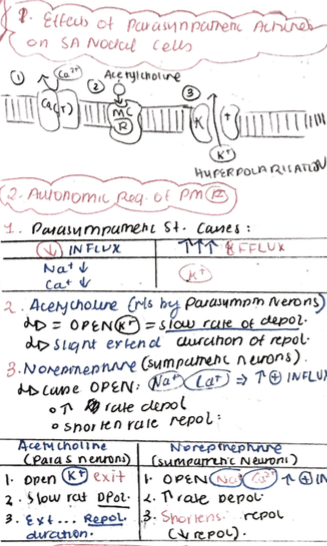 1. Effects of Parasympathetic Activities
on SA Nodal Cells
① Ca²⁺ ② Acetylcholine ③
Ca (T) MC R K T
K⁺
HYPERPOLARISATION
2. Autonomic Reg. of PM
1. Parasympathetic St. Causes:
(↓) INFLUX ↑↑↑ EFFLUX
Na⁺ ↓ K⁺
Ca⁺ ↓
2. Acetylcholine (rls by Parasympm nerons)
= OPEN K⁺ = slow rate of depol.
slight extend duration of repol.
3. Norepinephrine (sympathetic neurons).
Cause OPEN: Na⁺ Ca⁺ ⇒ ↑ ⊕ INFLUX
o ↑ rate depol
o shorten rate repol:
Acetylcholine Norepinephrine
(paras neurons) (sympathetic neurons)
1. Open K⁺ exit 1. OPEN Na⁺ Ca²⁺ ↑ ⊕ IN
2. Slow rat DPol. 2. ↑ rate Depol.
3. Ext... Repol. 3. Shortens repol
duration. (↓ repol).